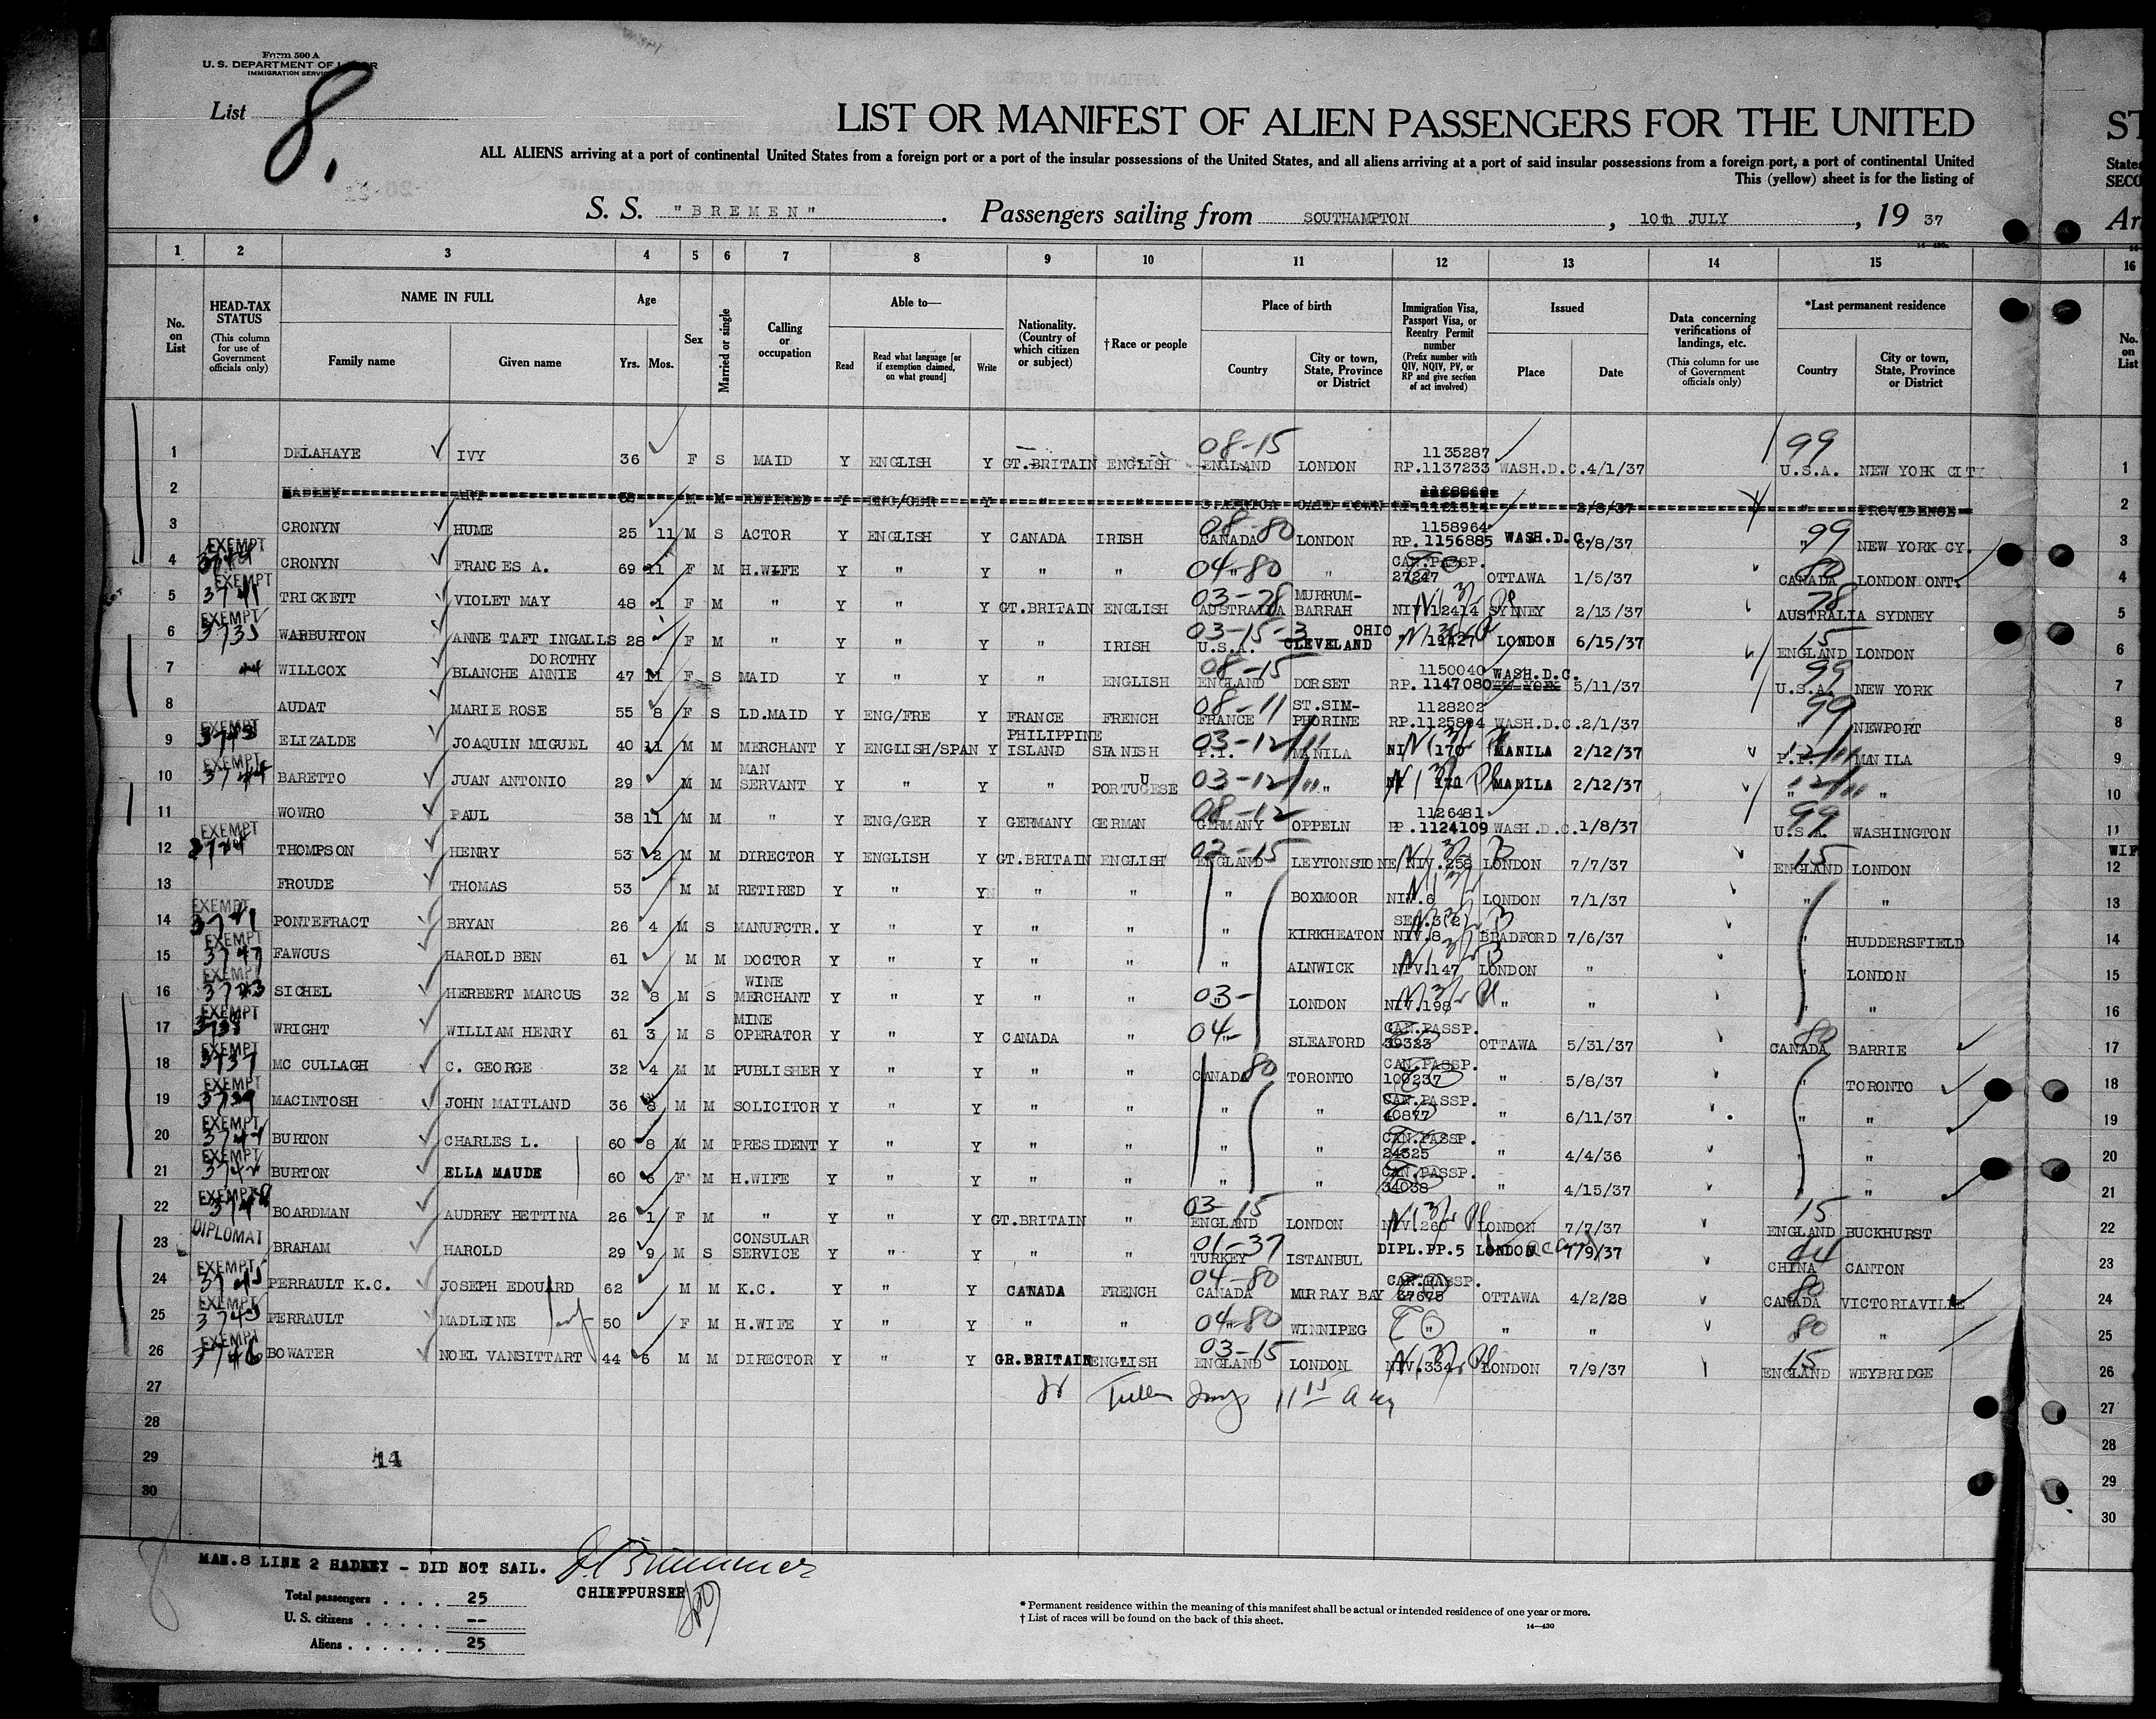 Form 500 A
U. S. DEPARTMENT OF LABOR
IMMIGRATION SERVICE
List 8.
LIST OR MANIFEST OF ALIEN PASSENGERS FOR THE UNITED
ALL ALIENS arriving at a port of continental United States from a foreign port or a port of the insular possessions of the United States, and all aliens arriving at a port of said insular possessions from a foreign port, a port of continental United
This (yellow) sheet is for the listing of
S. S. "BREMEN" . Passengers sailing from SOUTHAMPTON , 10th JULY , 19 37
1 2 3 4 5 6 7 8 9 10 11 12 13 14 15 16
No. on List
HEAD-TAX STATUS (This column for use of Government officials only)
NAME IN FULL Family name Given name
Age Yrs. Mos.
Sex
Married or single
Calling or occupation
Able to— Read Read what language [or if exemption claimed, on what ground] Write
Nationality. (Country of which citizen or subject)
†Race or people
Place of birth Country City or town, State, Province or District
Immigration Visa, Passport Visa, or Reentry Permit number (Prefix number with QIV, NQIV, PV, or RP and give section of act involved)
Issued Place Date
Data concerning verifications of landings, etc. (This column for use of Government officials only)
*Last permanent residence Country City or town, State, Province or District
No. on List
1 DELAHAYE IVY 36 F S MAID Y ENGLISH Y GT.BRITAIN ENGLISH 08-15 ENGLAND LONDON 1135287 RP.1137233 WASH.D.C. 4/1/37 99 U.S.A. NEW YORK CITY 1
2 HADLEY M M RETIRED Y ENG/GER Y " " S.AFRICA CAPE TOWN " 2/8/37 " PROVIDENCE 2
3 CRONYN HUME 25 11 M S ACTOR Y ENGLISH Y CANADA IRISH 08-80 CANADA LONDON 1158964 RP. 1156885 WASH.D.C. 6/8/37 99 " NEW YORK CY. 3
4 EXEMPT CRONYN FRANCES A. 69 11 F M H.WIFE Y " Y " " 04-80 " " CAN.PASSP. 27247 OTTAWA 1/5/37 80 CANADA LONDON ONT. 4
5 EXEMPT 3741 TRICKETT VIOLET MAY 48 1 F M " Y " Y GT.BRITAIN ENGLISH 03-78 AUSTRALIA MURRUM-BARRAH NIV12414 SYDNEY 2/13/37 78 AUSTRALIA SYDNEY 5
6 EXEMPT 3735 WARBURTON ANNE TAFT INGALLS 28 F M " Y " Y " IRISH 03-15-3 U.S.A. CLEVELAND OHIO 11427 LONDON 6/15/37 15 ENGLAND LONDON 6
7 WILLCOX DOROTHY BLANCHE ANNIE 47 11 F S MAID Y " Y " ENGLISH 08-15 ENGLAND DORSET 1150040 RP. 1147080 WASH.D.C. 5/11/37 99 U.S.A. NEW YORK 7
8 AUDAT MARIE ROSE 55 8 F S LD.MAID Y ENG/FRE Y FRANCE FRENCH 08-11 FRANCE ST.SIM-PHORINE 1128202 RP.1125894 WASH.D.C. 2/1/37 99 " NEWPORT 8
9 EXEMPT ELIZALDE JOAQUIN MIGUEL 40 11 M M MERCHANT Y ENGLISH/SPAN Y PHILIPPINE ISLAND SPANISH 03-12 P.I. MANILA 170 MANILA 2/12/37 P.I. MANILA 9
10 EXEMPT 3744 BARETTO JUAN ANTONIO 29 M M MAN SERVANT Y " Y " PORTUGUESE 03-12 " " 171 MANILA 2/12/37 " " 10
11 WOWRO PAUL 38 11 M M " Y ENG/GER Y GERMANY GERMAN 08-12 GERMANY OPPELN 1126481 RP.1124109 WASH.D.C. 1/8/37 99 U.S.A. WASHINGTON 11
12 EXEMPT THOMPSON HENRY 53 2 M M DIRECTOR Y ENGLISH Y GT.BRITAIN ENGLISH 02-15 ENGLAND LEYTONSTONE NIV.258 LONDON 7/7/37 15 ENGLAND LONDON WIF 12
13 FROUDE THOMAS 53 M M RETIRED Y " Y " " " BOXMOOR NIV.6 LONDON 7/1/37 " " 13
14 EXEMPT PONTEFRACT BRYAN 26 4 M S MANUFCTR. Y " Y " " " KIRKHEATON SEC.3(2) NIV.8 BRADFORD 7/6/37 " HUDDERSFIELD 14
15 EXEMPT 3747 FAWCUS HAROLD BEN 61 M M DOCTOR Y " Y " " " ALNWICK NIV.147 LONDON " " LONDON 15
16 EXEMPT SICHEL HERBERT MARCUS 32 8 M S WINE MERCHANT Y " Y " " 03- " LONDON NIV.198 " " " " 16
17 EXEMPT WRIGHT WILLIAM HENRY 61 3 M S MINE OPERATOR Y " Y CANADA " 04- " SLEAFORD CAN.PASSP. 39323 OTTAWA 5/31/37 80 CANADA BARRIE 17
18 EXEMPT 3737 MC CULLAGH C. GEORGE 32 4 M M PUBLISHER Y " Y " " CANADA 80 TORONTO CAN.PASSP. 100237 " 5/8/37 " TORONTO 18
19 EXEMPT MACINTOSH JOHN MAITLAND 36 8 M M SOLICITOR Y " Y " " " " CAN.PASSP. 40877 " 6/11/37 " " 19
20 EXEMPT BURTON CHARLES L. 60 8 M M PRESIDENT Y " Y " " " " CAN.PASSP. 24325 " 4/4/36 " " 20
21 EXEMPT BURTON ELLA MAUDE 60 6 F M H.WIFE Y " Y " " " " CAN.PASSP. 34038 " 4/15/37 " " 21
22 EXEMPT BOARDMAN AUDREY BETTINA 26 1 F M " Y " Y GT.BRITAIN " 03-15 ENGLAND LONDON NIV.260 LONDON 7/7/37 15 ENGLAND BUCKHURST 22
23 DIPLOMAT BRAHAM HAROLD 29 9 M S CONSULAR SERVICE Y " Y " " 01-37 TURKEY ISTANBUL DIPL.PP.5 LONDON 7/9/37 44 CHINA CANTON 23
24 EXEMPT PERRAULT K.C. JOSEPH EDOUARD 62 M M K.C. Y " Y CANADA FRENCH 04-80 CANADA MURRAY BAY CAN.PASSP. 37675 OTTAWA 4/2/28 80 CANADA VICTORIAVILLE 24
25 EXEMPT PERRAULT MADLEINE 50 F M H.WIFE Y " Y " " 04-80 " WINNIPEG " " " 80 " " 25
26 EXEMPT 3746 BOWATER NOEL VANSITTART 44 6 M M DIRECTOR Y " Y GR.BRITAIN ENGLISH 03-15 ENGLAND LONDON NIV.334 LONDON 7/9/37 15 ENGLAND WEYBRIDGE 26
27 27
28 28
29 14 29
30 30
MAN.8 LINE 2 HADLEY - DID NOT SAIL.
CHIEFPURSER
Total passengers . . . . 25
U. S. citizens . . . . . --
Aliens . . . . . . 25
* Permanent residence within the meaning of this manifest shall be actual or intended residence of one year or more.
† List of races will be found on the back of this sheet.
14—430
ST
States
SECO
Ar